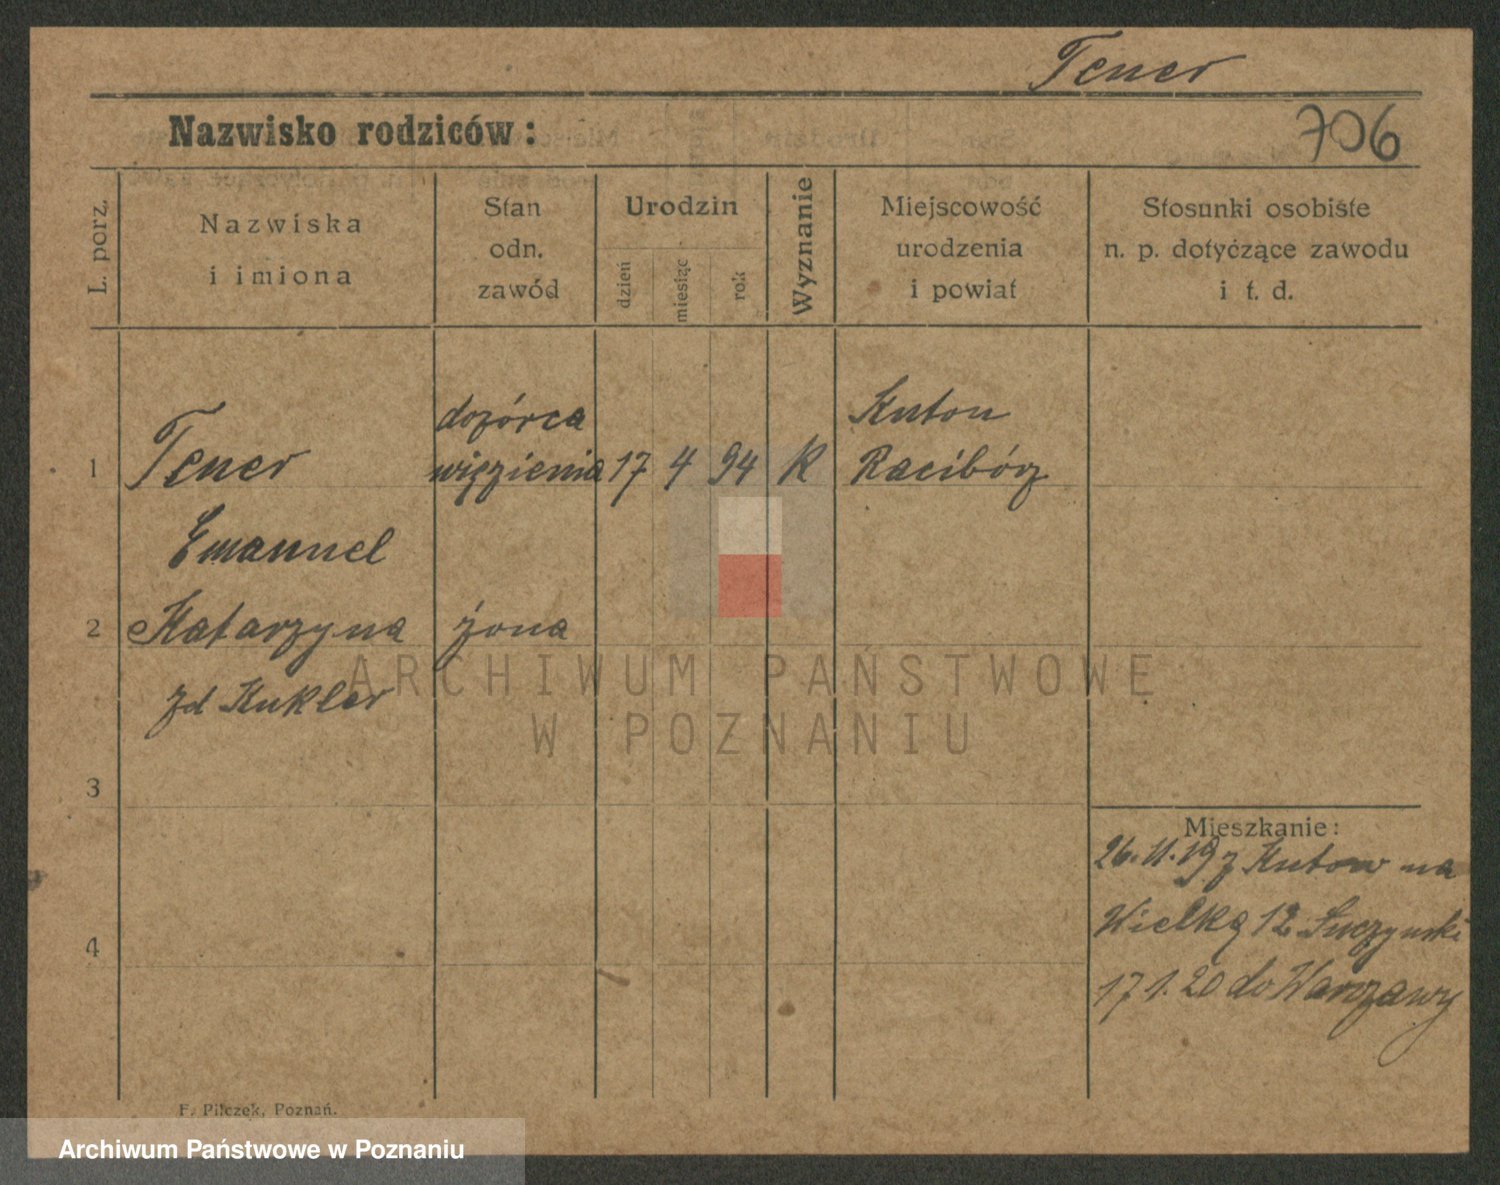 Tener
Nazwisko rodziców:
706
L. porz.
Nazwiska
i imiona
Stan
odn.
zawód
Urodzin
dzień
miesiąc
rok
Wyznanie
Miejscowość
urodzenia
i powiat
Stosunki osobiste
n. p. dotyczące zawodu
i t. d.
1
Tener
Emanuel
dozórca
więzienia
17 4 94 K
Racibórz
2
Katarzyna
żona
zd Kukler
3
Mieszkanie:
26.11.19 z na
Wielką 12
17.1.20 do Warszawy
4
F. Pilczek, Poznań.
ARCHIWUM PAŃSTWOWE
W POZNANIU
Archiwum Państwowe w Poznaniu